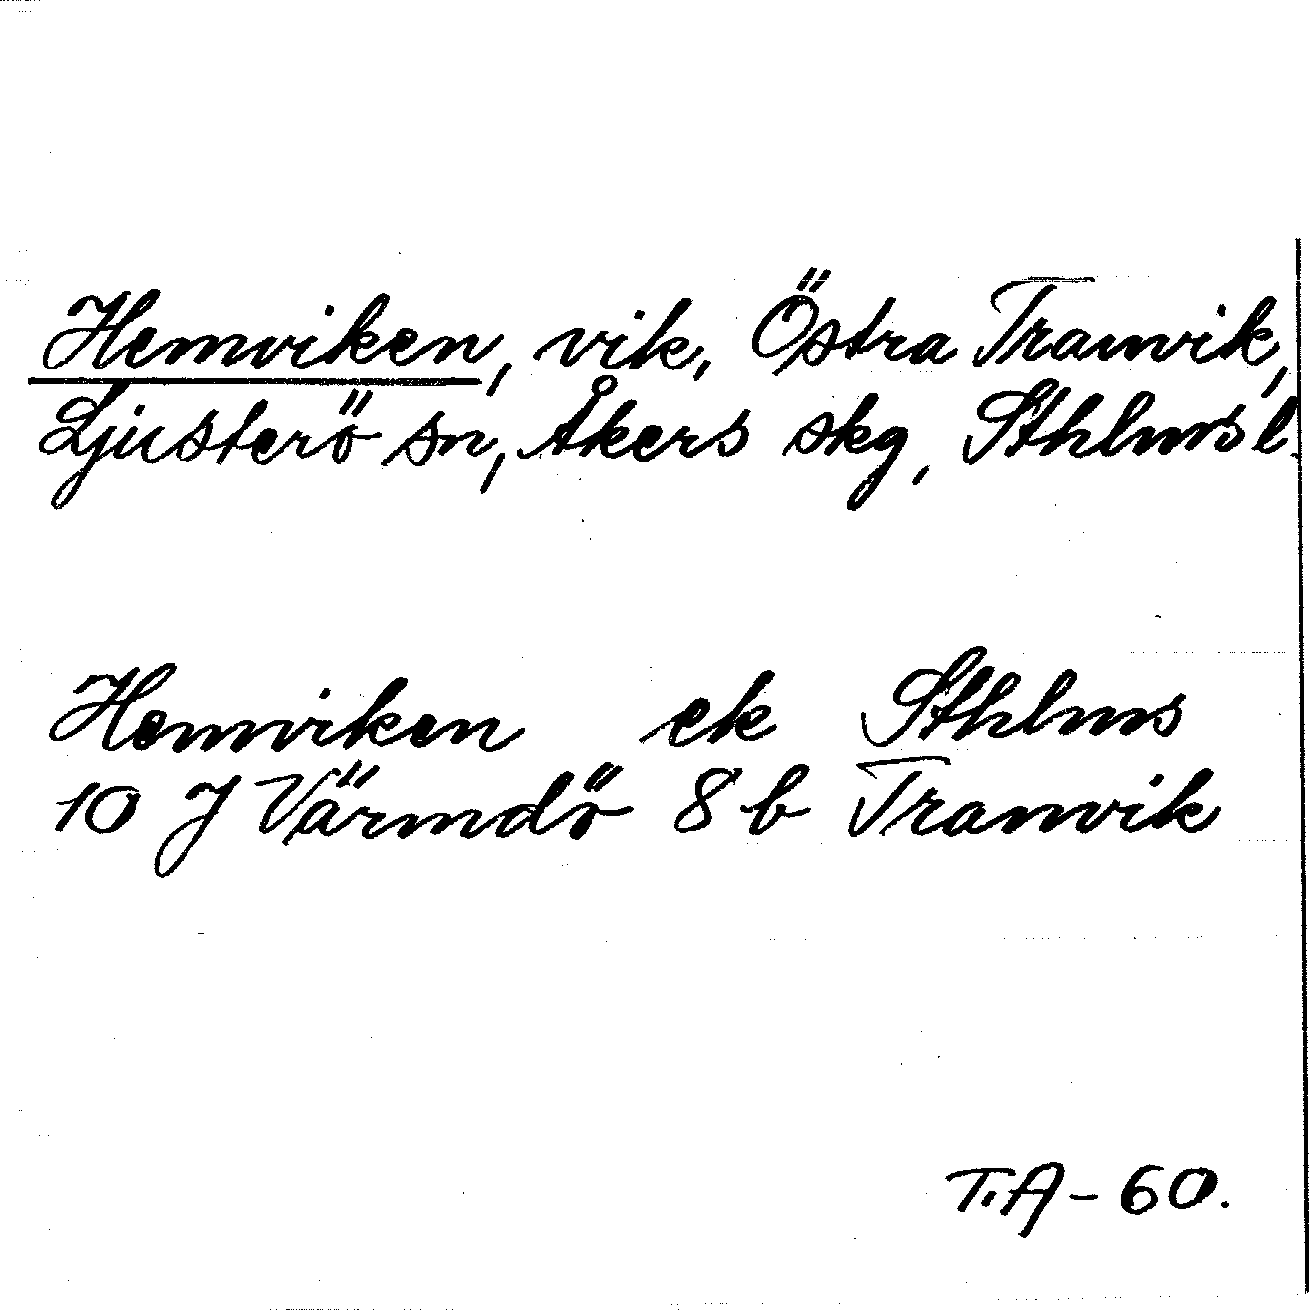 Hemviken, vik, Östra Tranvik,
Ljusterö sn, Åkers skg, Sthlms l.
Hemviken ek Sthlms
10 J Värmdö 8 b Tranvik
T.A-60.